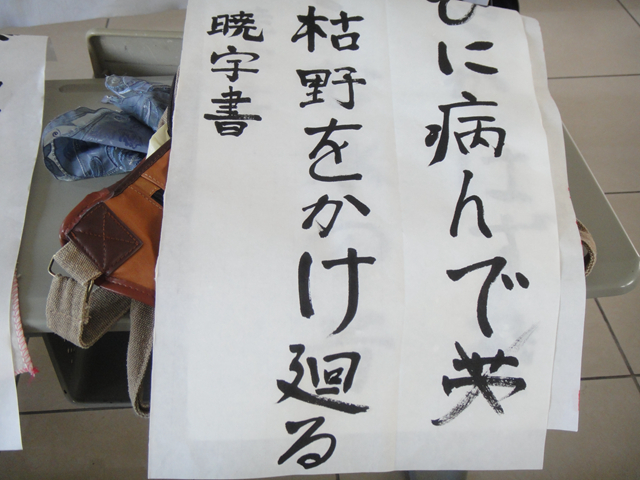 に病んで夢
枯野をかけ廻る
暁宇書